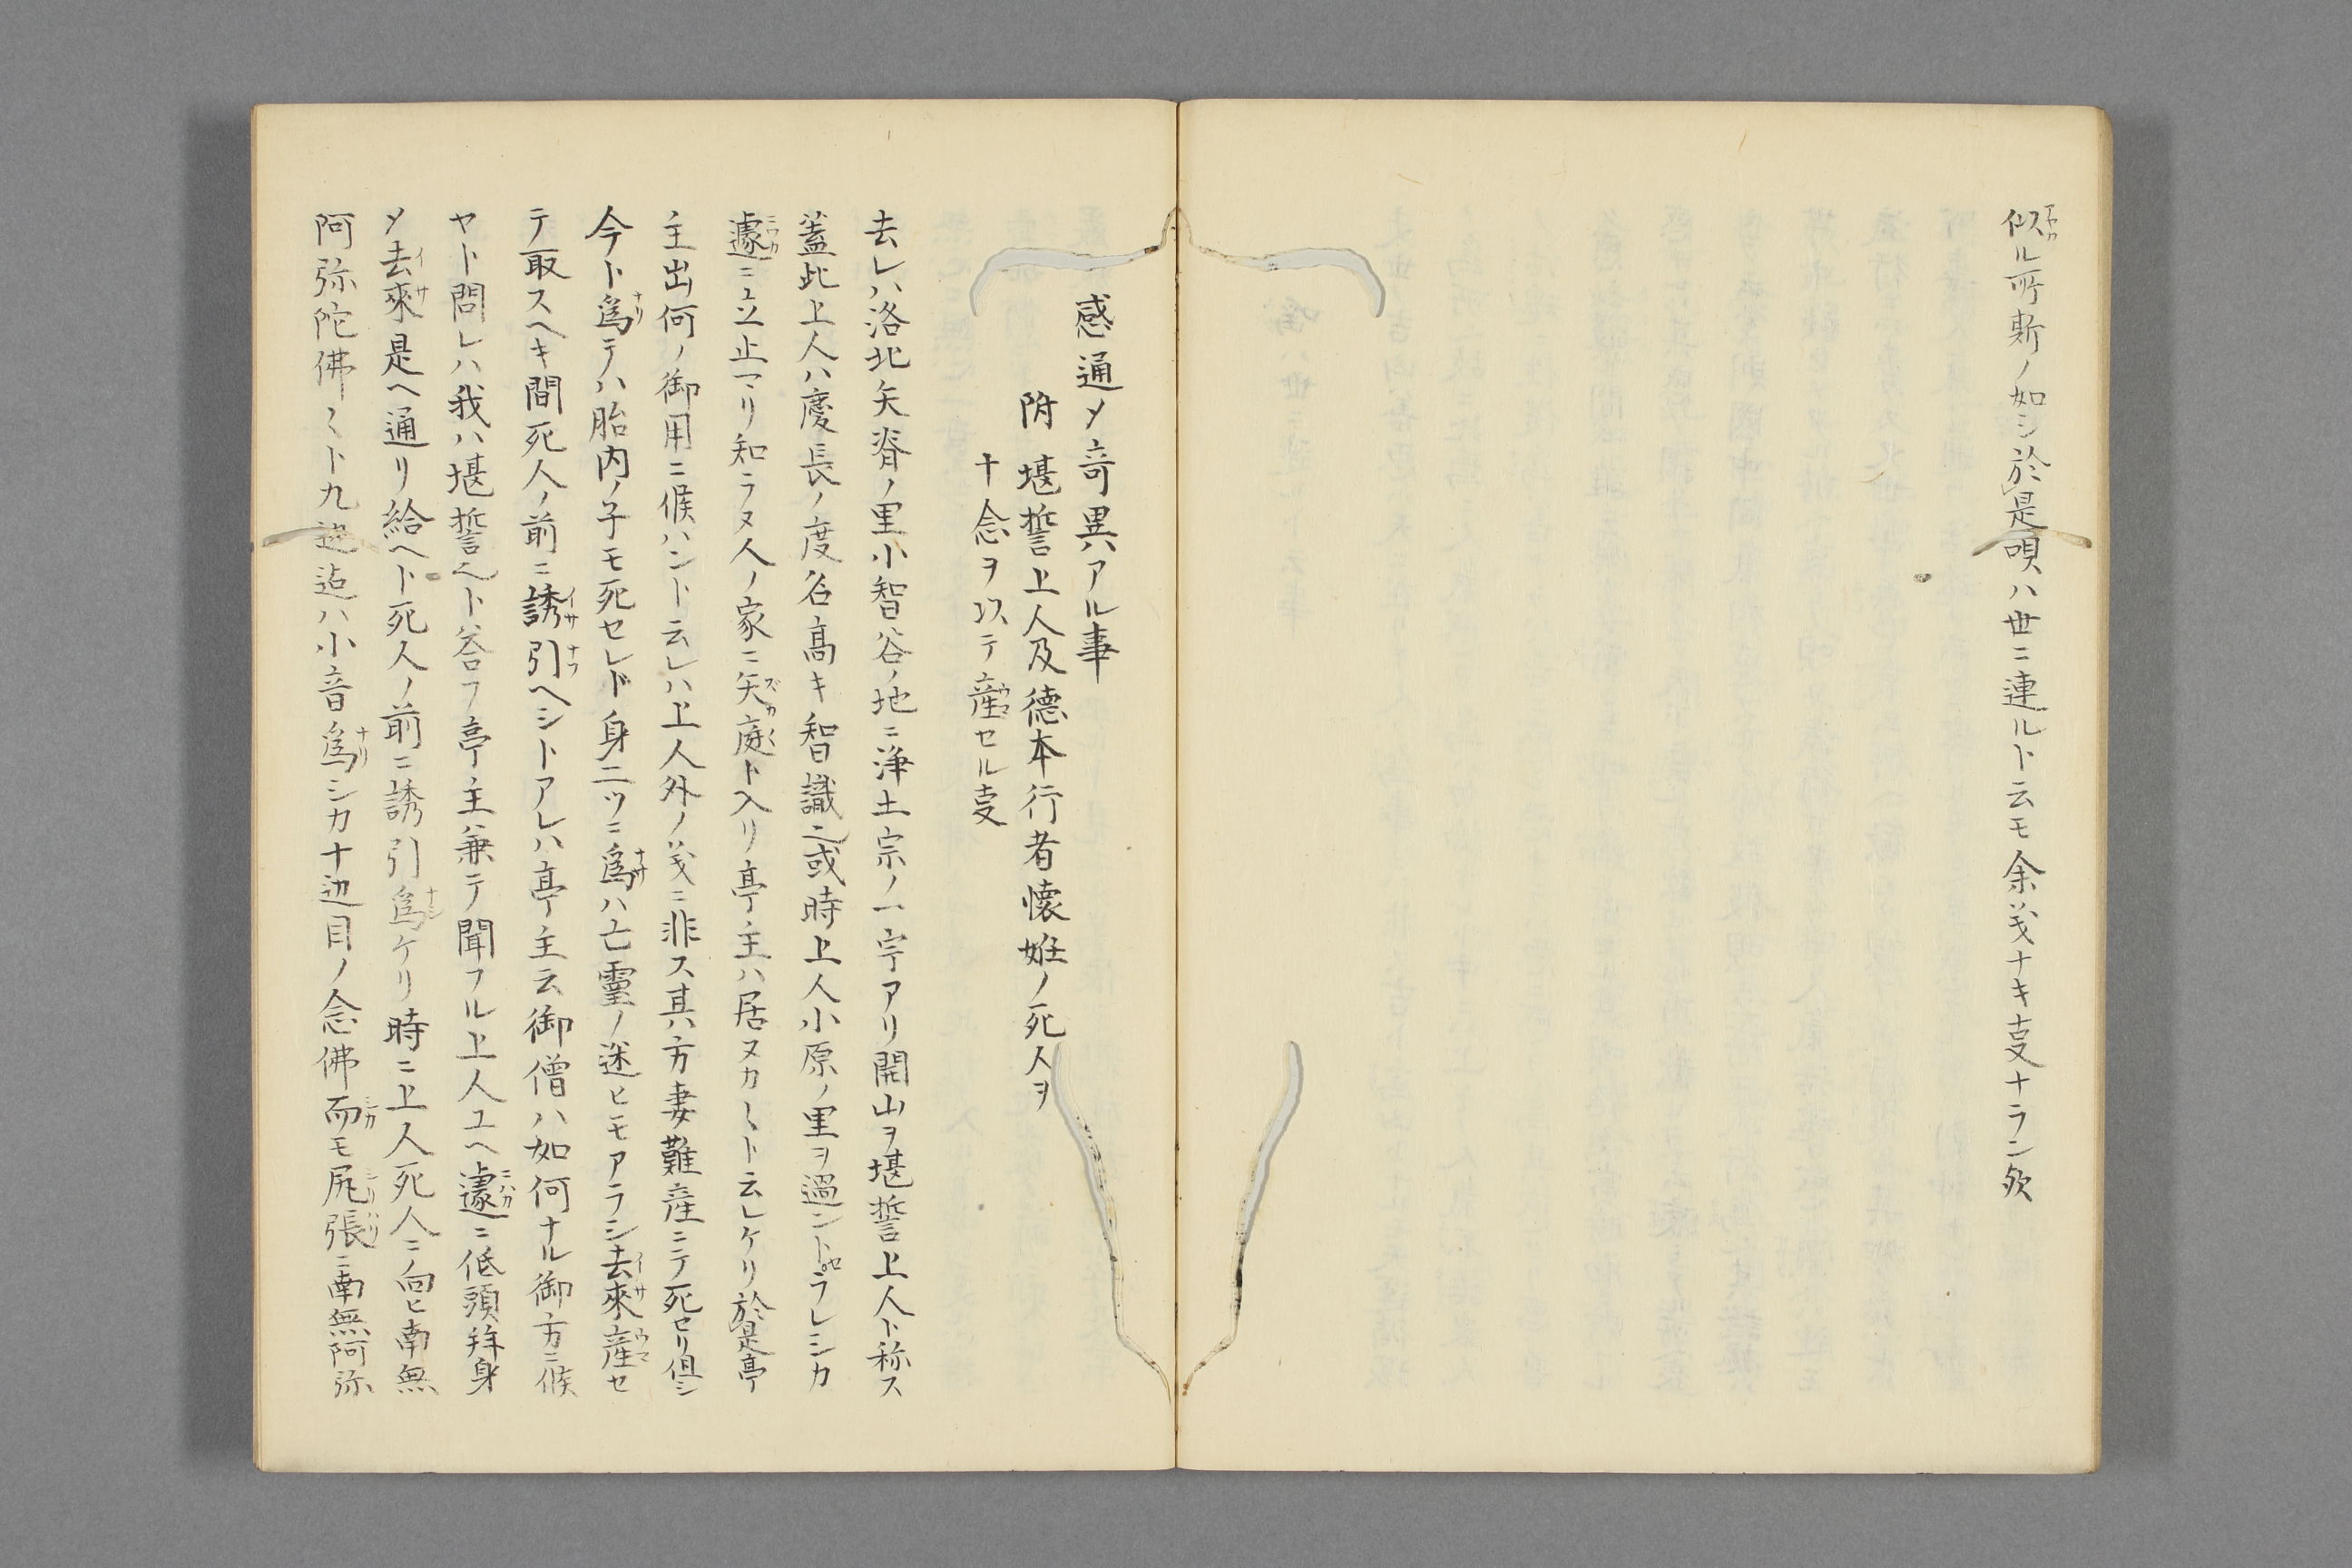 似ル所斯ノ如シ於是唄ハ世ニ連ルト云モ余義ナキ叓ナラン欤
感通〆奇異アル事
附 堪誓上人及德本行者懷妊ノ死人ヲ
十念ヲ以テ産セル叓
去レハ洛北矢脊ノ里小智谷ノ地ニ淨土宗ノ一宇アリ開山ヲ堪誓上人ト称ス
蓋此上人ハ慶長ノ度名高キ智識也或時上人小原ノ里ヲ過ントセラレシカ
遽ニ立止マリ知ラヌ人ノ家ニ矢庭ト入リ亭主ハ居ヌカ〱ト云レケリ於是亭
主出何ノ御用ニ候ハント云レハ上人外ノ義ニ非ス其方妻難産ニテ死セリ但シ
今ト爲テハ胎内ノ子モ死セレド身二ツニ爲ハ亡霊ノ迷ヒモアラシ去來産セ
テ取スヘキ間死人ノ前ニ誘引ヘシトアレハ亭主云御僧ハ如何ナル御方ニ候
ヤト問レハ我ハ堪誓也ト答フ亭主兼テ聞フル上人ユヘ遽ニ低頭拜身
〆去來是ヘ通リ給ヘト死人ノ前ニ誘引爲ケリ時ニ上人死人ニ向ヒ南無
阿弥陀佛〱ト九遍迠ハ小音爲シカ十辺目ノ念佛而モ尻張ニ南無阿弥